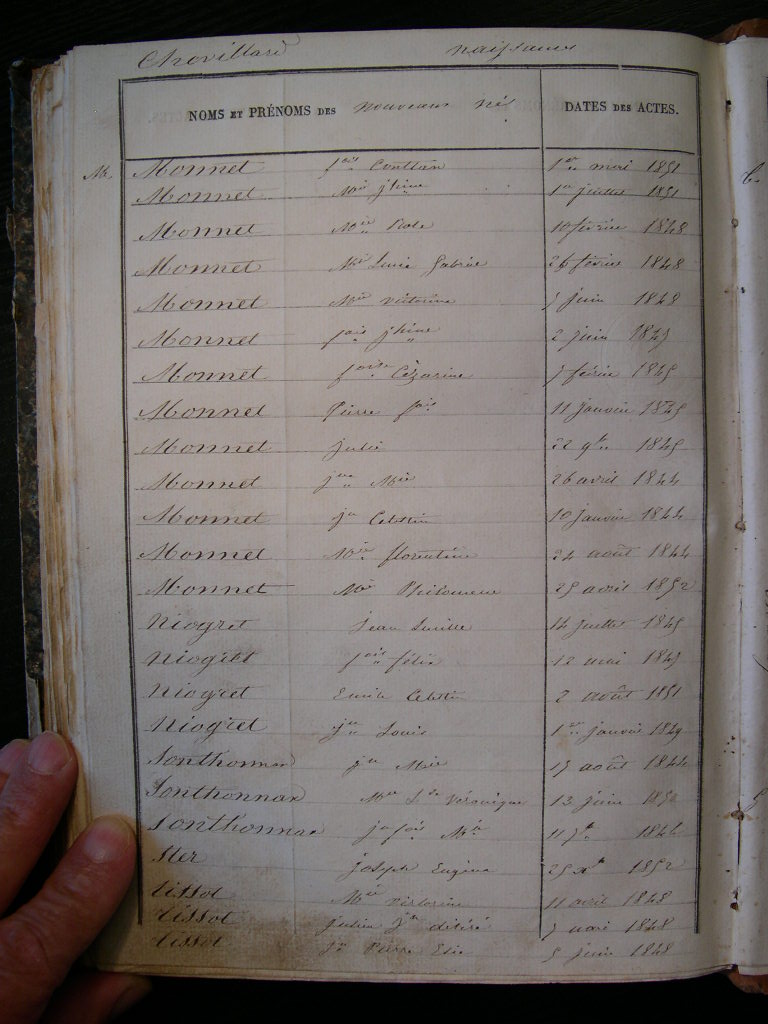 Chevillard naissances
NOMS ET PRÉNOMS DES nouveaux nés DATES DES ACTES.
M. Monnet f.ois Constan 1er mai 1851
Monnet Mie jhine 1er juillet 1851
Monnet Mie Rose 10 février 1848
Monnet Mie Lucie Gabrine 26 février 1848
Monnet Mie victorine 7 juin 1848
Monnet f.ois jhine 2 juin 1847
Monnet f.oise Cézarine 7 février 1845
Monnet Pierre f.ois 11 janvier 1845
Monnet julie 22 9bre 1845
Monnet jne Mie 26 avril 1844
Monnet jn Celestin 10 janvier 1844
Monnet Mie florentine 24 août 1844
Monnet Mie Philomene 25 avril 1852
Niogret Jean 14 juillet 1845
Niogret f.ois félix 12 mai 1847
Niogret Emile Celestin 2 août 1851
Niogret Louis 1er janvier 1849
Sonthonnax Mie 17 août 1844
Sonthonnax Mie Véronique 13 juin 1852
Sonthonnax jn fois Mie 11 1846
Ster joseph Eugène 25 1852
tissot Mie victorine 11 avril 1848
tissot julien jn désiré 7 mai 1848
tissot Jn Pierre Elie 5 juin 1848